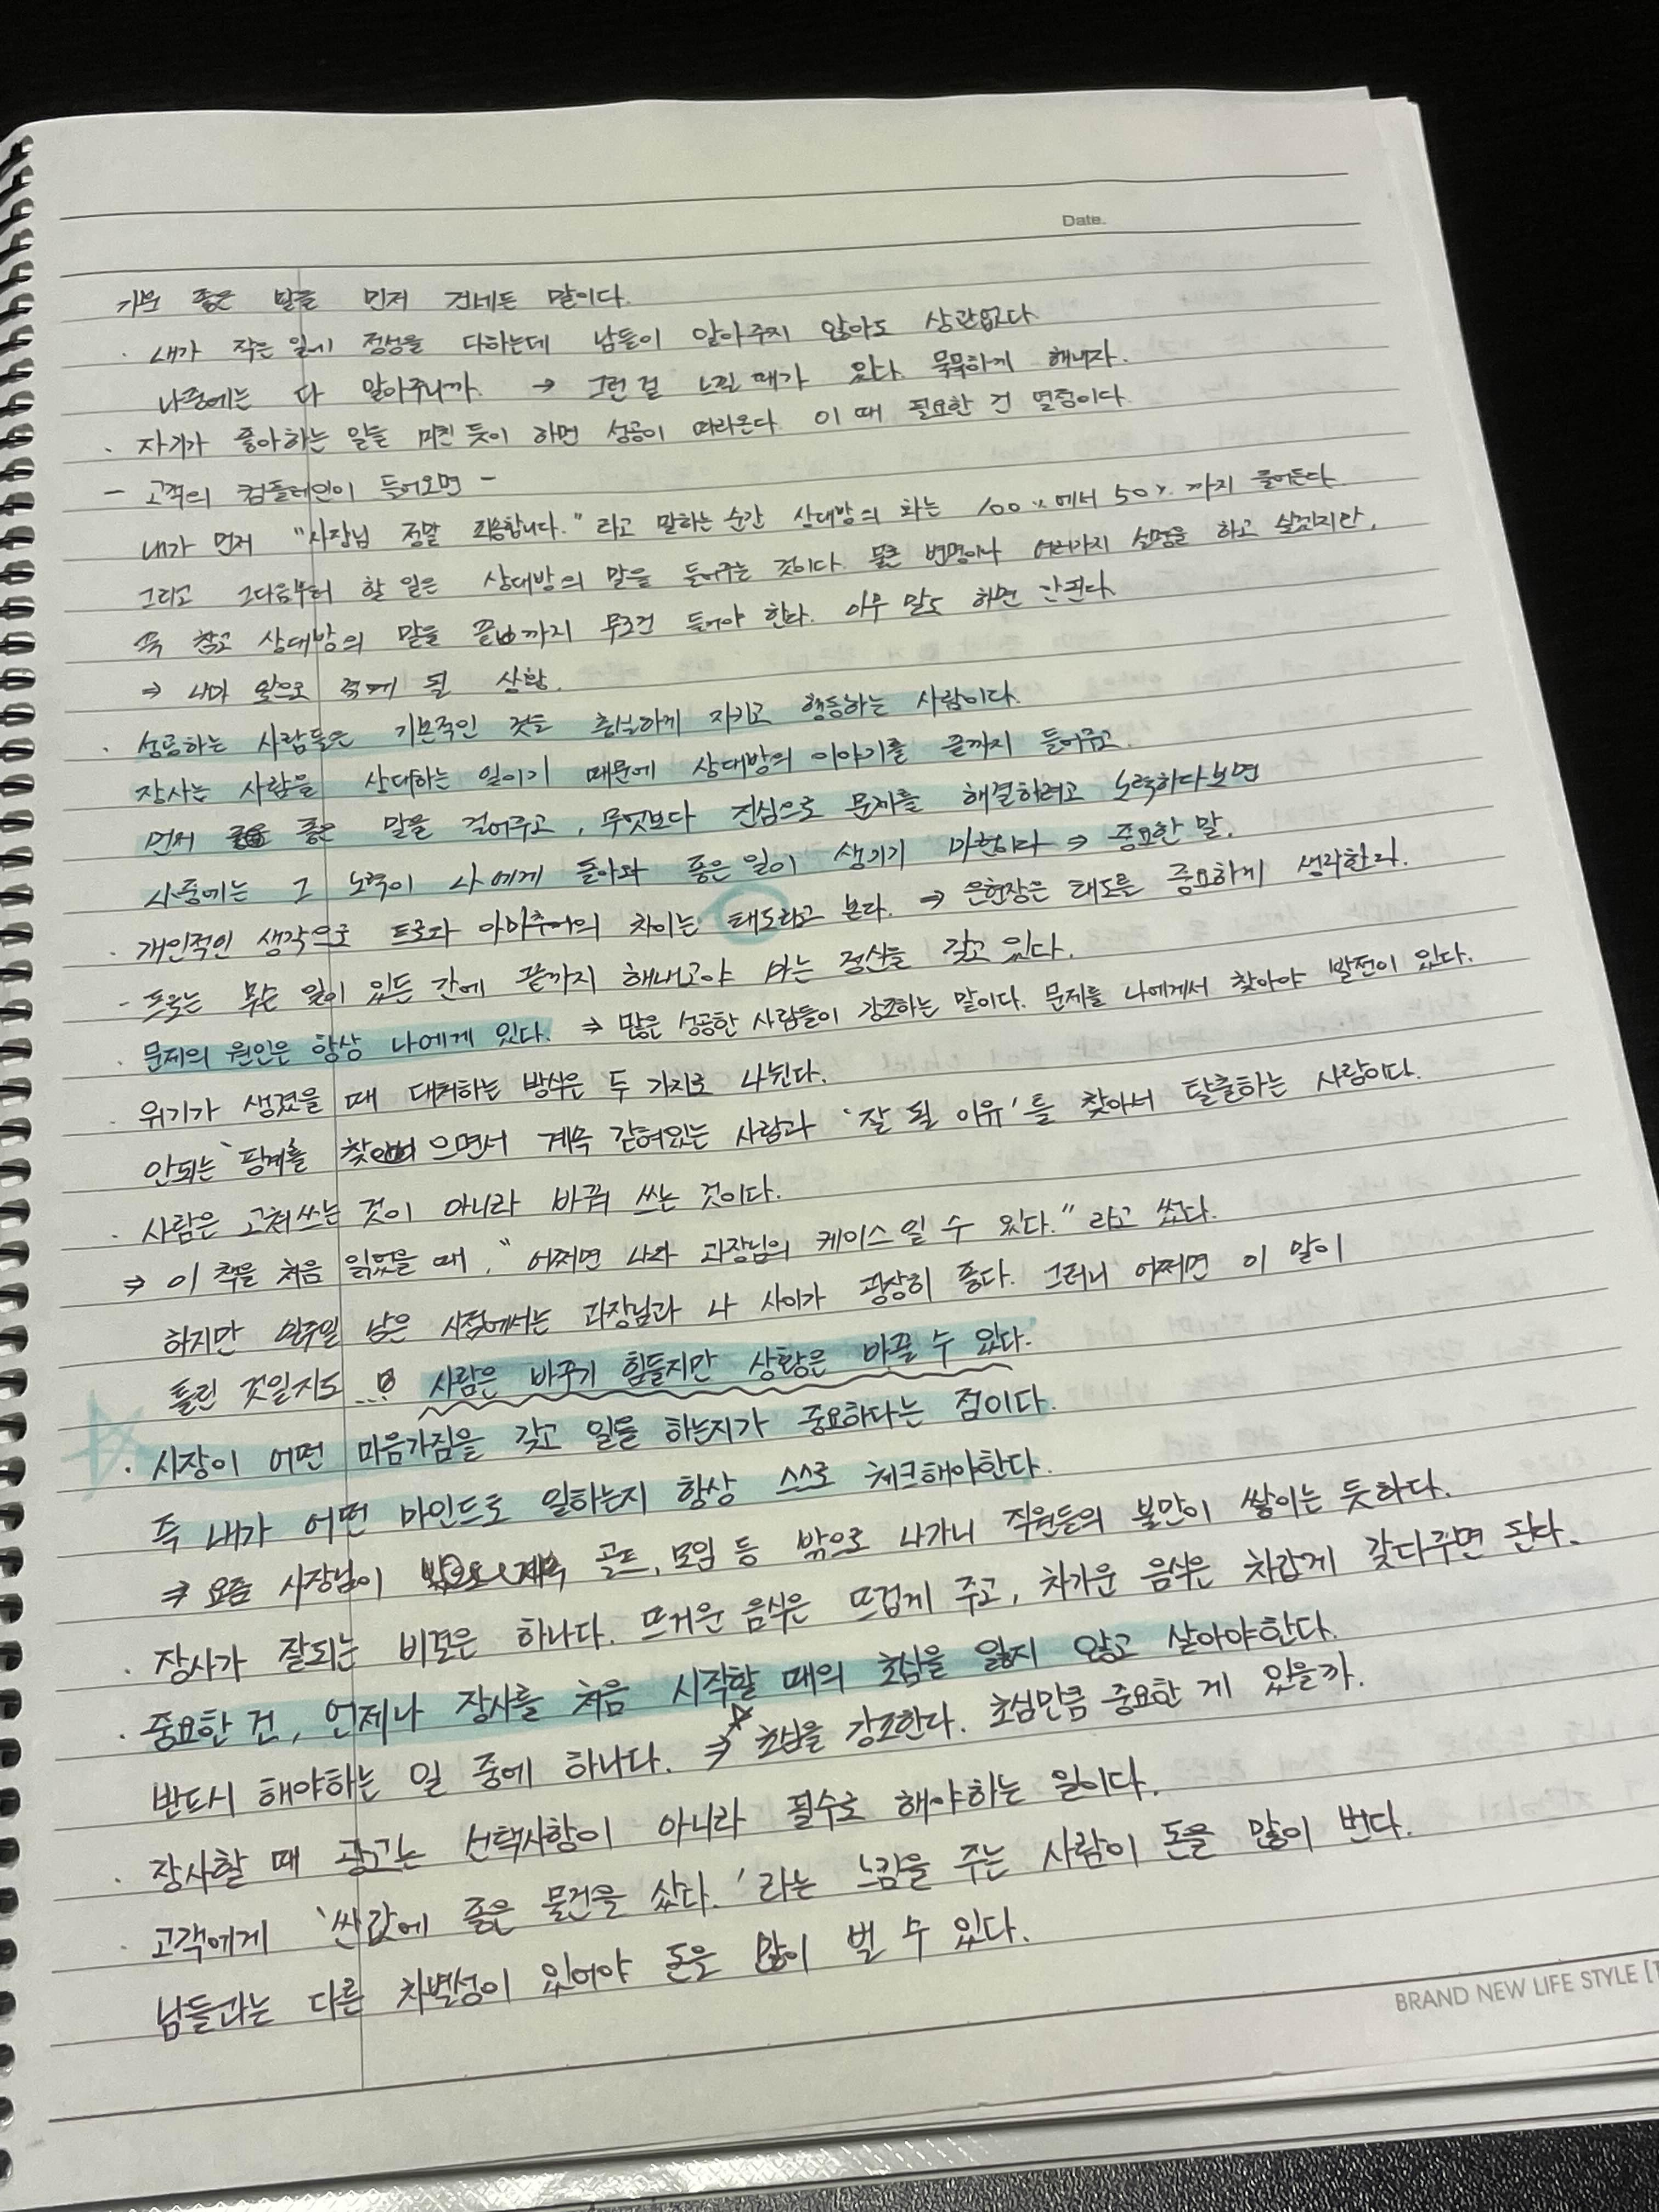 Date.
기분 좋은 말을 먼저 건네는 말이다.
· 내가 작은 일에 정성을 다하는데 남들이 알아주지 않아도 상관없다.
나중에는 다 알아주니까. → 그런 걸 느낄 때가 있다. 묵묵하게 해내자.
· 자기가 좋아하는 일을 미친 듯이 하면 성공이 따라온다. 이 때 필요한 건 열정이다.
- 고객의 컴플레인이 들어오면 -
내가 먼저 "사장님 정말 죄송합니다." 라고 말하는 순간 상대방의 화는 100%에서 50%까지 줄어든다.
그리고 그다음부터 할 일은 상대방의 말을 들어주는 것이다. 물론 변명이나 여러가지 설명을 하고 싶겠지만,
꾹 참고 상대방의 말을 끝까지 무조건 들어야 한다. 아무 말도 하면 안된다.
⇒ 내가 앞으로 겪게 될 상황.
· 성공하는 사람들은 기본적인 것을 충실하게 지키고 행동하는 사람이다.
장사는 사람을 상대하는 일이기 때문에 상대방의 이야기를 끝까지 들어주고.
먼저 좋은 말을 걸어주고, 무엇보다 진심으로 문제를 해결하려고 노력하다보면
나중에는 그 노력이 나에게 돌아와 좋은 일이 생기기 마련이다 ⇒ 중요한 말.
· 개인적인 생각으로 프로와 아마추어의 차이는 태도라고 본다. ⇒ 은현장은 태도를 중요하게 생각한다.
- 프로는 무슨 일이 있든 간에 끝까지 해내고야 마는 정신을 갖고 있다.
· 문제의 원인은 항상 나에게 있다. ⇒ 많은 성공한 사람들이 강조하는 말이다. 문제를 나에게서 찾아야 발전이 있다.
· 위기가 생겼을 때 대처하는 방식은 두 가지로 나뉜다.
안되는 '핑계를 찾으면서 계속 갇혀있는 사람과 '잘 될 이유'를 찾아서 탈출하는 사람이다.
· 사람은 고쳐쓰는 것이 아니라 바꿔 쓰는 것이다.
⇒ 이 책을 처음 읽었을 때, "어쩌면 나와 과장님의 케이스일 수 있다." 라고 썼다.
하지만 일주일 남은 시점에서는 과장님과 나 사이가 굉장히 좋다. 그러니 어쩌면 이 말이
틀린 것일지도...? 사람은 바꾸기 힘들지만 상황은 바꿀 수 있다.
· 사장이 어떤 마음가짐을 갖고 일을 하는지가 중요하다는 점이다.
즉 내가 어떤 마인드로 일하는지 항상 스스로 체크해야한다.
⇒ 요즘 사장님이 골프, 모임 등 밖으로 나가니 직원들의 불만이 쌓이는 듯하다.
· 장사가 잘되는 비결은 하나다. 뜨거운 음식은 뜨겁게 주고, 차가운 음식은 차갑게 갖다주면 된다.
· 중요한 건, 언제나 장사를 처음 시작할 때의 초심을 잃지 않고 살아야한다.
반드시 해야하는 일 중에 하나다. ⇒ 초심을 강조한다. 초심만큼 중요한 게 있을까.
· 장사할 때 광고는 선택사항이 아니라 필수로 해야하는 일이다.
· 고객에게 '싼값에 좋은 물건을 샀다.'라는 느낌을 주는 사람이 돈을 많이 번다.
남들과는 다른 차별성이 있어야 돈을 많이 벌 수 있다.
BRAND NEW LIFE STYLE